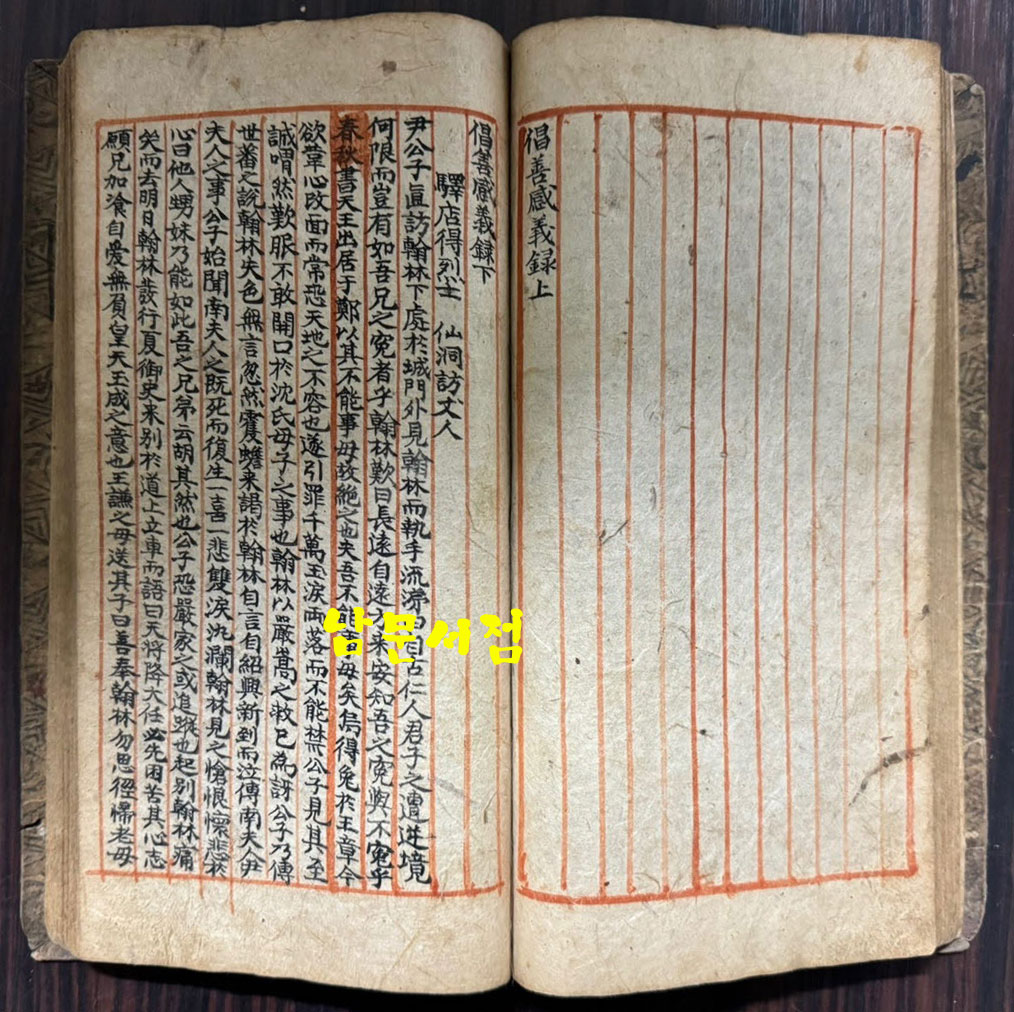 倡善感義録上
倡善感義録下
驛店得烈士 仙洞訪丈人
尹公子直訪翰林下處於城門外見翰林而執手流涕曰自古仁人君子之遭逆境
何限而豈有如吾兄之寃者乎翰林歎曰長遠自遠方来安知吾之寃與不寃乎
春秋書天王出居于鄭以其不能事母故絶之也夫吾不能事母矣烏得免於王章今
欲革心改面而常恐天地之不容也遂引罪千萬玉淚雨落而不能禁公子見其至
誠喟然歎服不敢開口於沈氏母子之事也翰林以嚴嵩之救已為訝公子乃傳
世蕃之說翰林失色無言忽然震蟾来謁於翰林自言自紹興新到而泣傳南夫人尹
夫人之事公子始聞南夫人之既死而復生一喜一悲雙淚汍瀾翰林見之愴恨懷悲於
心曰他人甥妹乃能如此吾之兄弟云胡其然也公子恐嚴家之或追蹤也起別翰林痛
哭而去明日翰林發行夏御史来别於道上立車而語曰天将降大任必先困苦其心志
願兄加飡自愛無負皇天玉成之意也王謙之母送其子曰善奉翰林勿思徑歸老母
남문서점